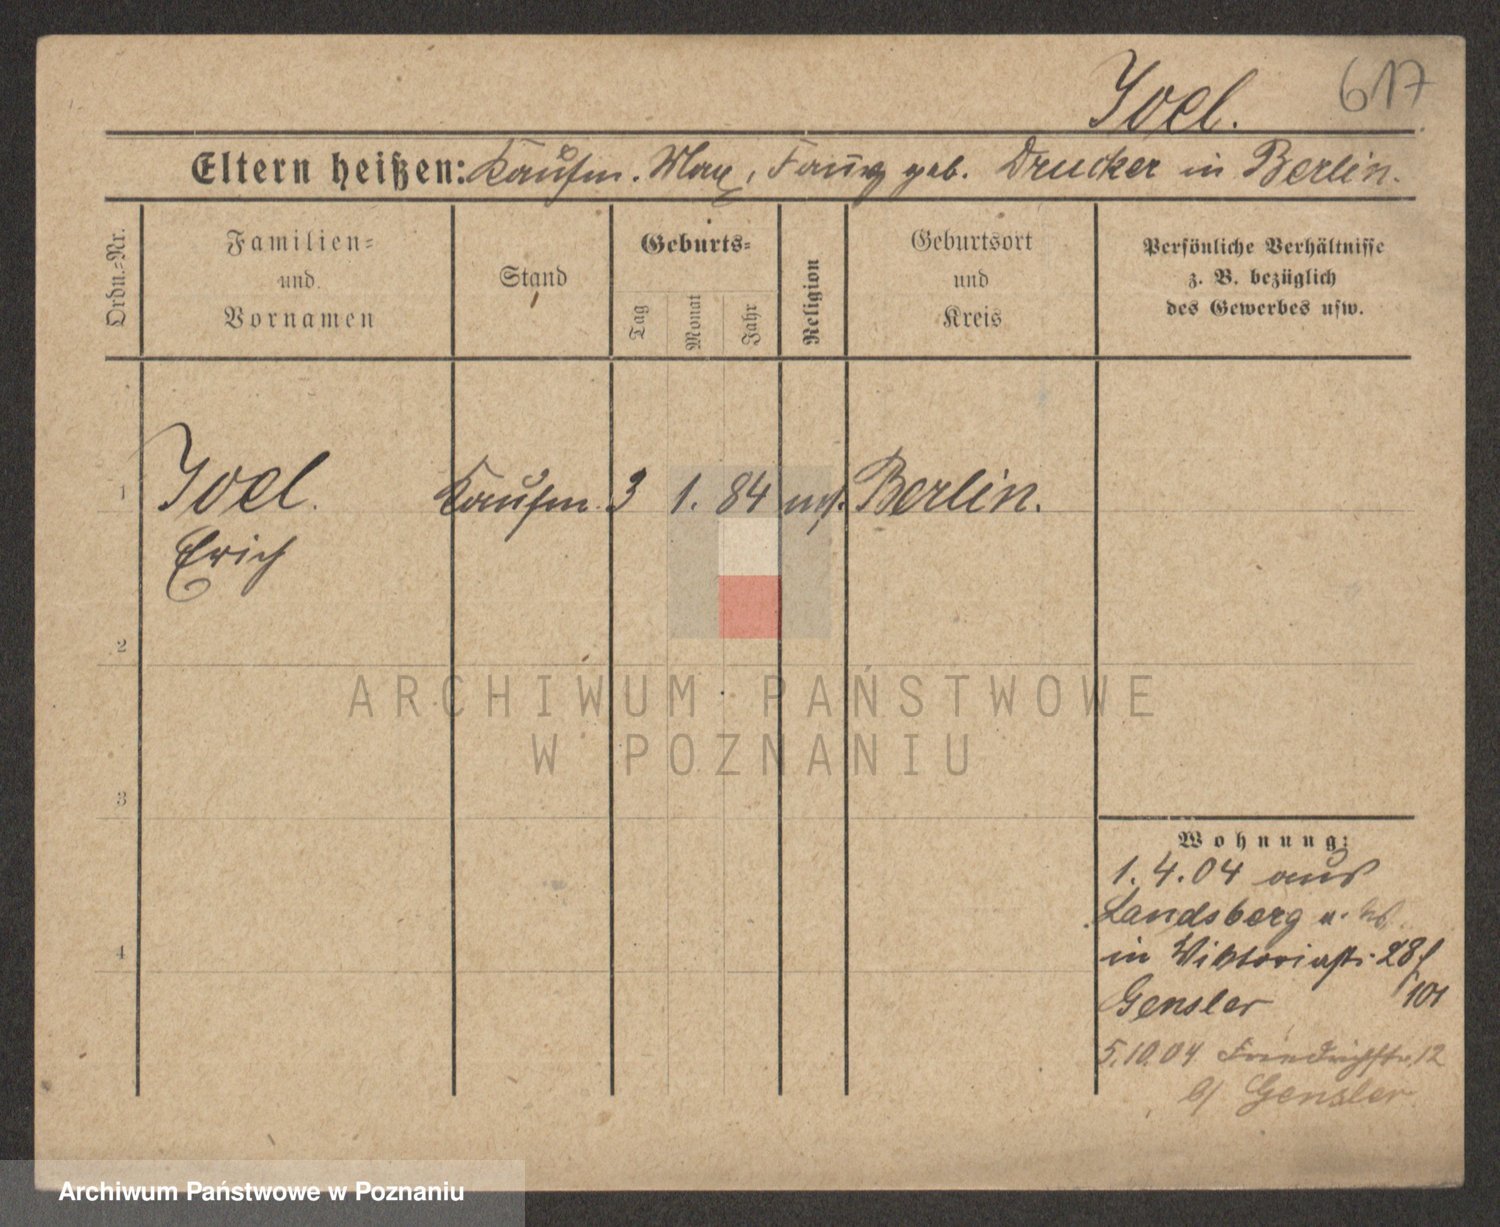 Joel.
617
Eltern heißen: Kaufm. Max, Fanny geb. Drucker in Berlin.
Ordn.-Nr.
Familien-
und
Vornamen
Stand
Geburts-
Tag
Monat
Jahr
Religion
Geburtsort
und
Kreis
Persönliche Verhältnisse
z. B. bezüglich
des Gewerbes usw.
1
Joel. Kaufm. 3 1. 84 mos. Berlin.
Erich
2
3
4
Wohnung:
1.4.04 aus
Landsberg a.
in Viktoriastr. 28
Gensler
5.10.04 Friedrichstr. 12
b/ Gensler
ARCHIWUM PAŃSTWOWE
W POZNANIU
Archiwum Państwowe w Poznaniu